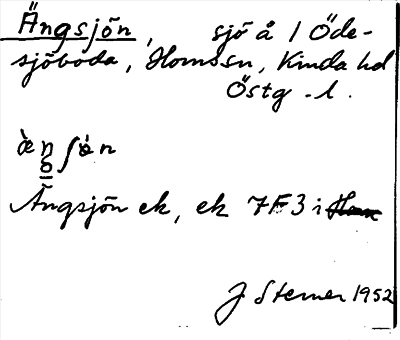 Ängsjön, sjö å 1 Öde-
sjöboda, Homssn, Kinda hd
Östg. l.
Ängsjön ek, ek 7F3 i
J Sterner 1952